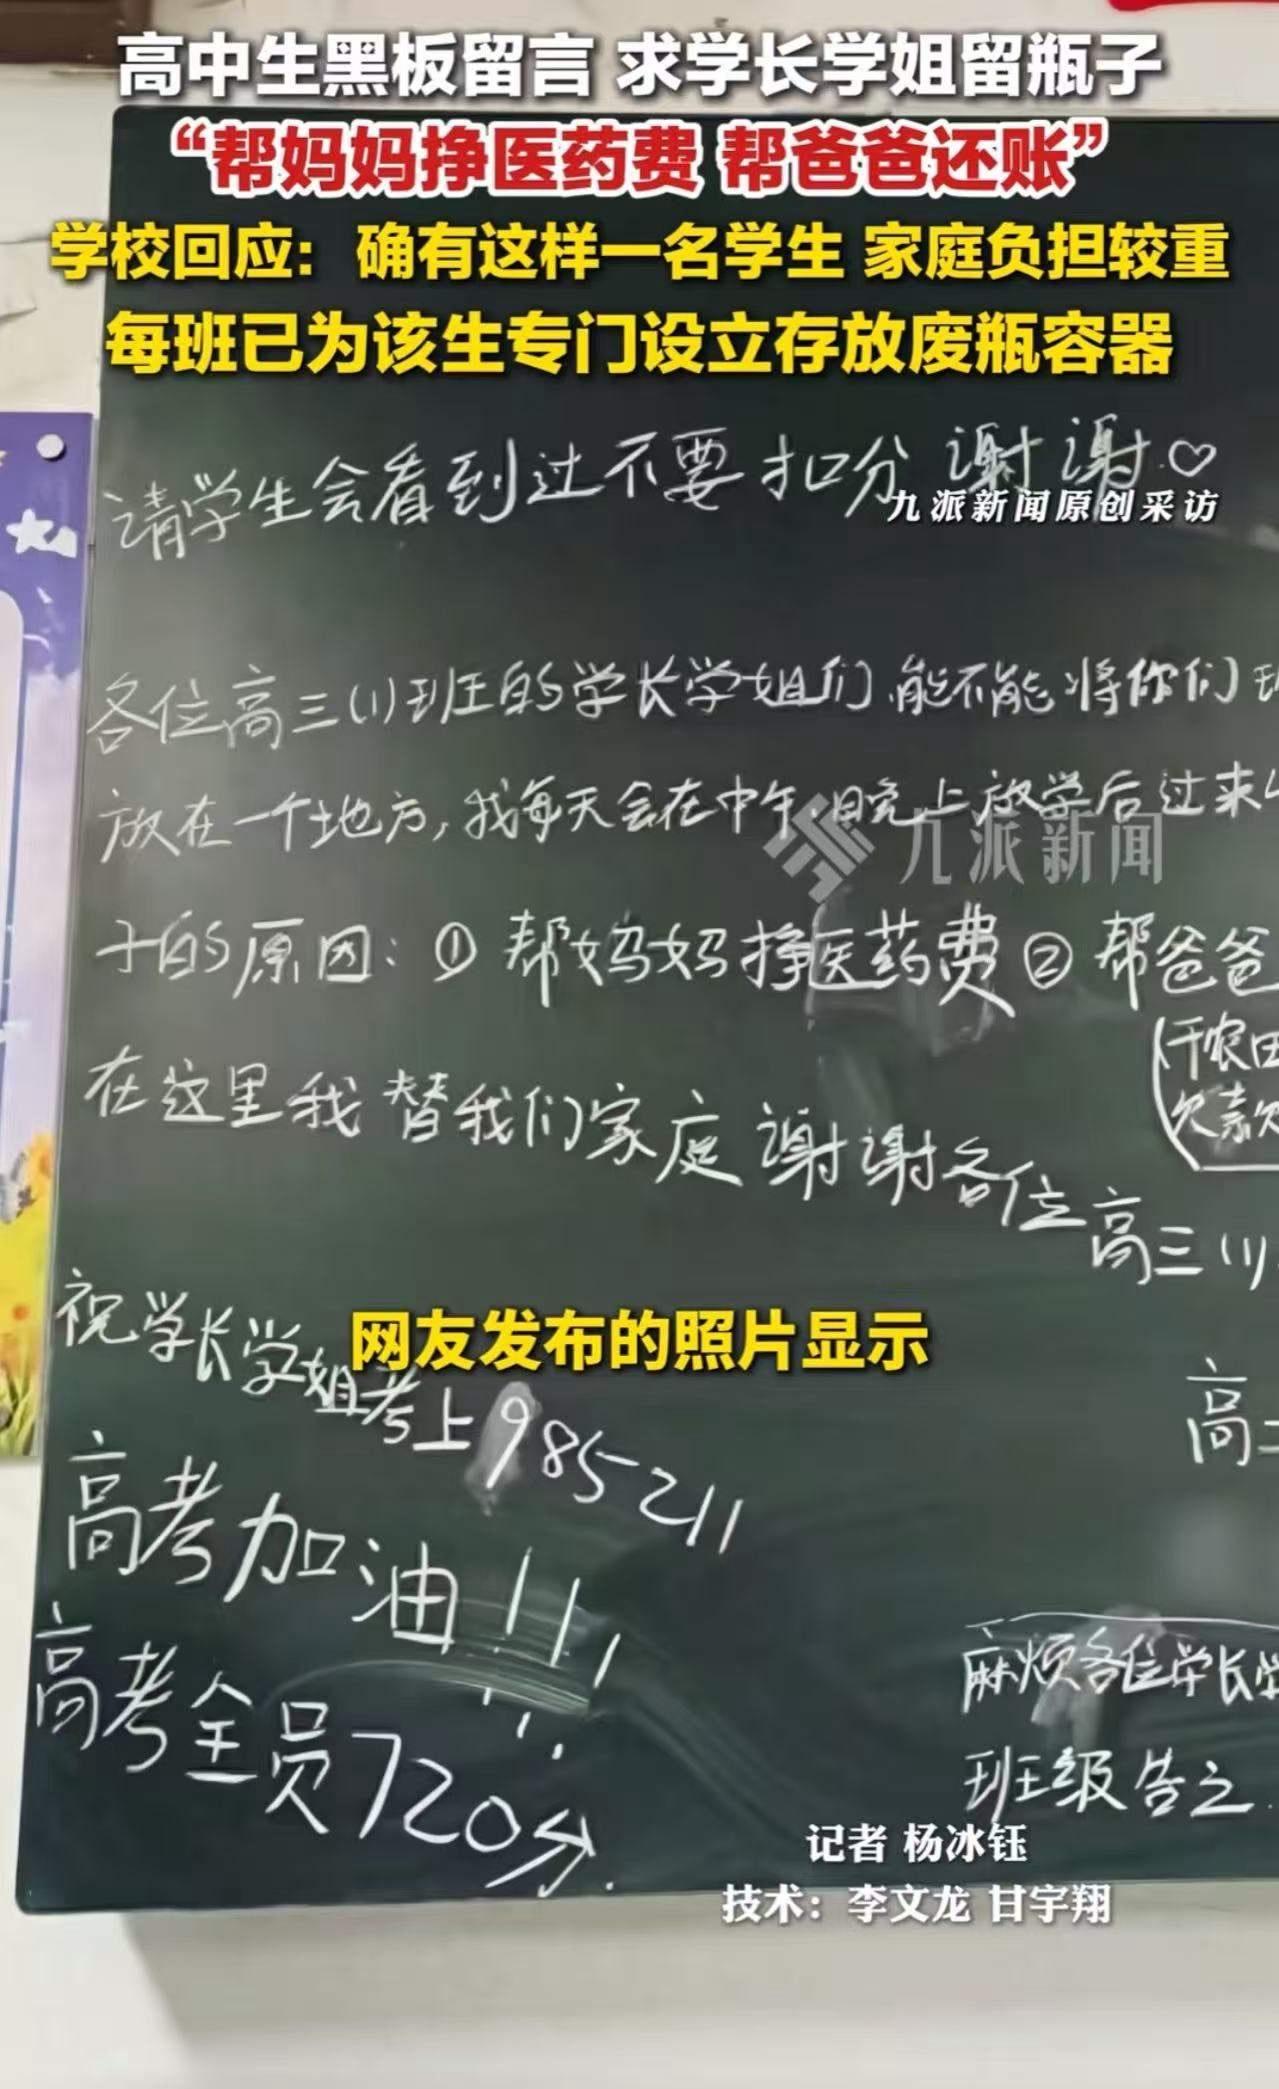 高中生黑板留言 求学长学姐留瓶子
“帮妈妈挣医药费 帮爸爸还账”
学校回应：确有这样一名学生 家庭负担较重
每班已为该生专门设立存放废瓶容器
请学生会看到过不要扣分 谢谢♡
九派新闻原创采访
各位高三(1)班的学长学姐们,能不能将你们班
放在一个地方,我每天会在中午.晚上放学后过来
九派新闻
子的原因:①帮妈妈挣医药费②帮爸爸
(干农田
欠款
在这里我替我们家庭谢谢各位高三(1)
祝学长学姐考上985 211
网友发布的照片显示
高
高考加油!!!!!
高考全员720分.
麻烦各位学长学
班级告之.
记者 杨冰钰
技术：李文龙 甘宇翔